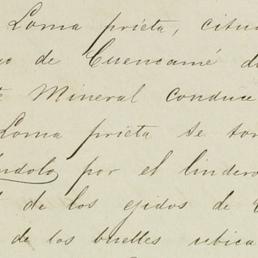 Loma prieta, citu
o de Cuencamé d
Mineral conduce
Loma prieta se to
ndolo por el lindero
de los ejidos de
de los buelles ubica